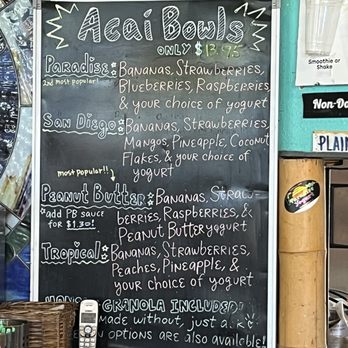 Acai Bowls
ONLY $13.95
Paradise: Bananas, Strawberries,
2nd most popular! Blueberries, Raspberries
& your choice of yogurt
San Diego: Bananas, Strawberries,
Mangos, Pineapple, Coconut
Flakes, & your choice of
yogurt
most popular!!
Peanut Butter: Bananas, Straw
*add PB sauce berries, Raspberries, &
for $1.30! Peanut Butter yogurt
Tropical: Bananas, Strawberries,
Peaches, Pineapple, &
your choice of
yogurt
GRANOLA INCLUDED!
made without, just ask
options are also available!
Smoothie or
Shake
Non-Da
PLAIN